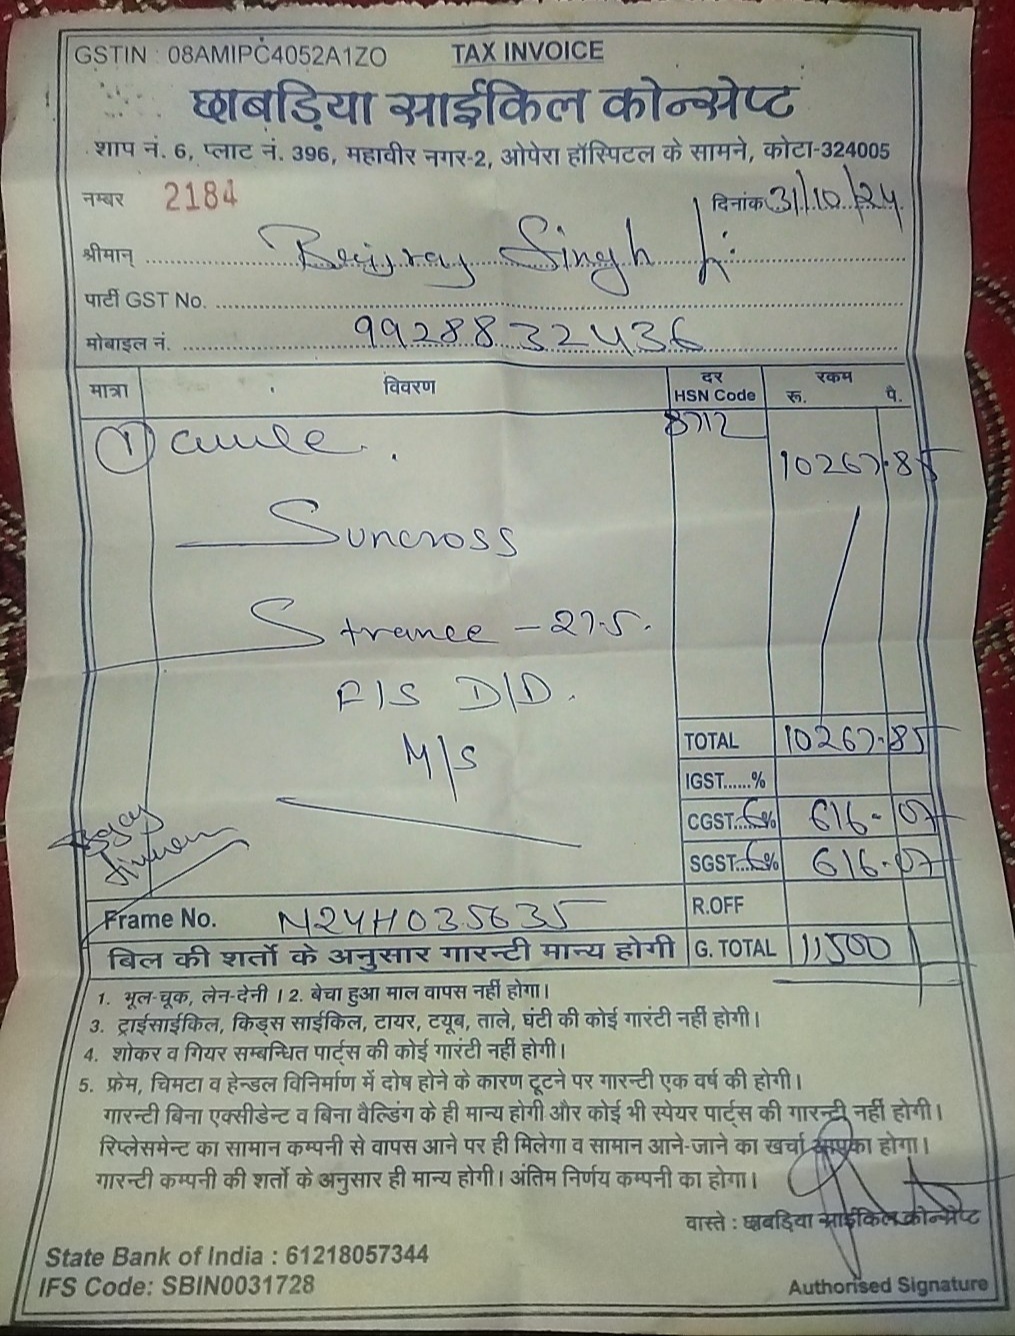 GSTIN : 08AMIPC4052A1ZO TAX INVOICE
छाबड़िया साईकिल कोन्सेप्ट
शाप नं. 6, प्लाट नं. 396, महावीर नगर-2, ओपेरा हॉस्पिटल के सामने, कोटा-324005
नम्बर 2184 दिनांक 31/10/24
श्रीमान् Singh Ji
पार्टी GST No.
मोबाइल नं. 9928832436
मात्रा विवरण दर HSN Code रकम रू. पै.
1 8712 10267.85
Suncross
Strance - 27.5.
F/S D/D.
M/S
TOTAL 10267.85
IGST......%
CGST...6% 616-07
SGST...6% 616-07
Frame No. N24H035635 R.OFF
बिल की शर्तो के अनुसार गारन्टी मान्य होगी G. TOTAL 11,500
1. भूल-चूक, लेन-देनी । 2. बेचा हुआ माल वापस नहीं होगा।
3. ट्राईसाईकिल, किड्स साईकिल, टायर, टयूब, ताले, घंटी की कोई गारंटी नहीं होगी।
4. शोकर व गियर सम्बन्धित पार्ट्स की कोई गारंटी नहीं होगी।
5. फ्रेम, चिमटा व हेन्डल विनिर्माण में दोष होने के कारण टूटने पर गारन्टी एक वर्ष की होगी।
गारन्टी बिना एक्सीडेन्ट व बिना वैल्डिंग के ही मान्य होगी और कोई भी स्पेयर पार्ट्स की गारन्टी नहीं होगी।
रिप्लेसमेन्ट का सामान कम्पनी से वापस आने पर ही मिलेगा व सामान आने-जाने का खर्चा आपका होगा।
गारन्टी कम्पनी की शर्तो के अनुसार ही मान्य होगी। अंतिम निर्णय कम्पनी का होगा।
वास्ते : छाबड़िया साईकिल कोन्सेप्ट
State Bank of India : 61218057344
IFS Code: SBIN0031728 Authorised Signature